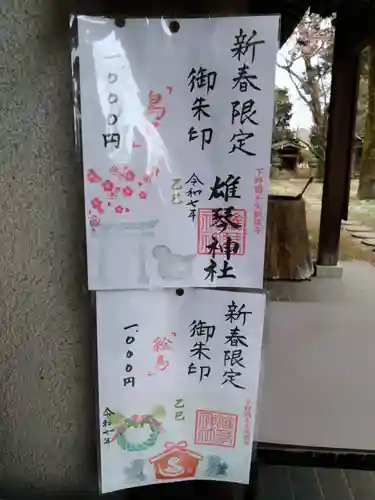 新春限定
御朱印
「鳥」
一、〇〇〇円
下野國壬生郷鎮守
雄琴神社
令和七年
乙巳
新春限定
御朱印
「絵馬」
一、〇〇〇円
乙巳
令和七年